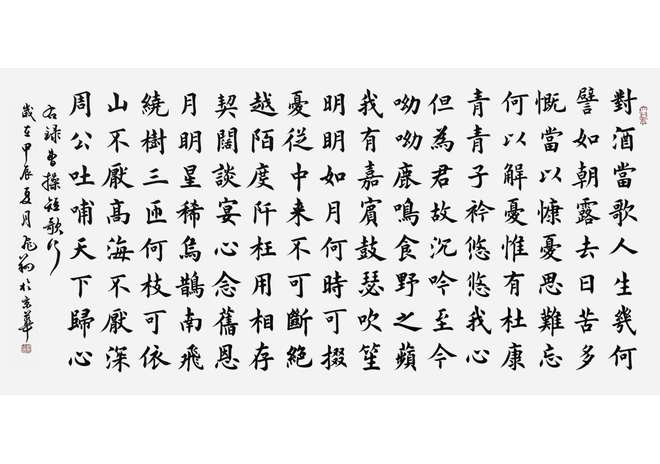 對酒當歌人生幾何
譬如朝露去日苦多
慨當以慷憂思難忘
何以解憂惟有杜康
青青子衿悠悠我心
但為君故沉吟至今
呦呦鹿鳴食野之蘋
我有嘉賓鼓瑟吹笙
明明如月何時可掇
憂從中来不可斷絕
越陌度阡枉用相存
契闊談宴心念舊恩
月明星稀烏鵲南飛
繞樹三匝何枝可依
山不厭高海不厭深
周公吐哺天下歸心
右録曹操短歌行
歲在甲辰夏月於京華